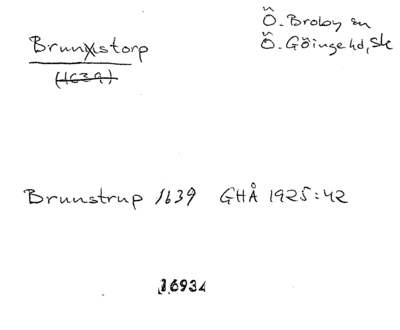 Brunstorp
(1639)
Ö. Broby sn
Ö. Göinge hd, Sk
Brunstrup 1639 GHÅ 1925:42
16934